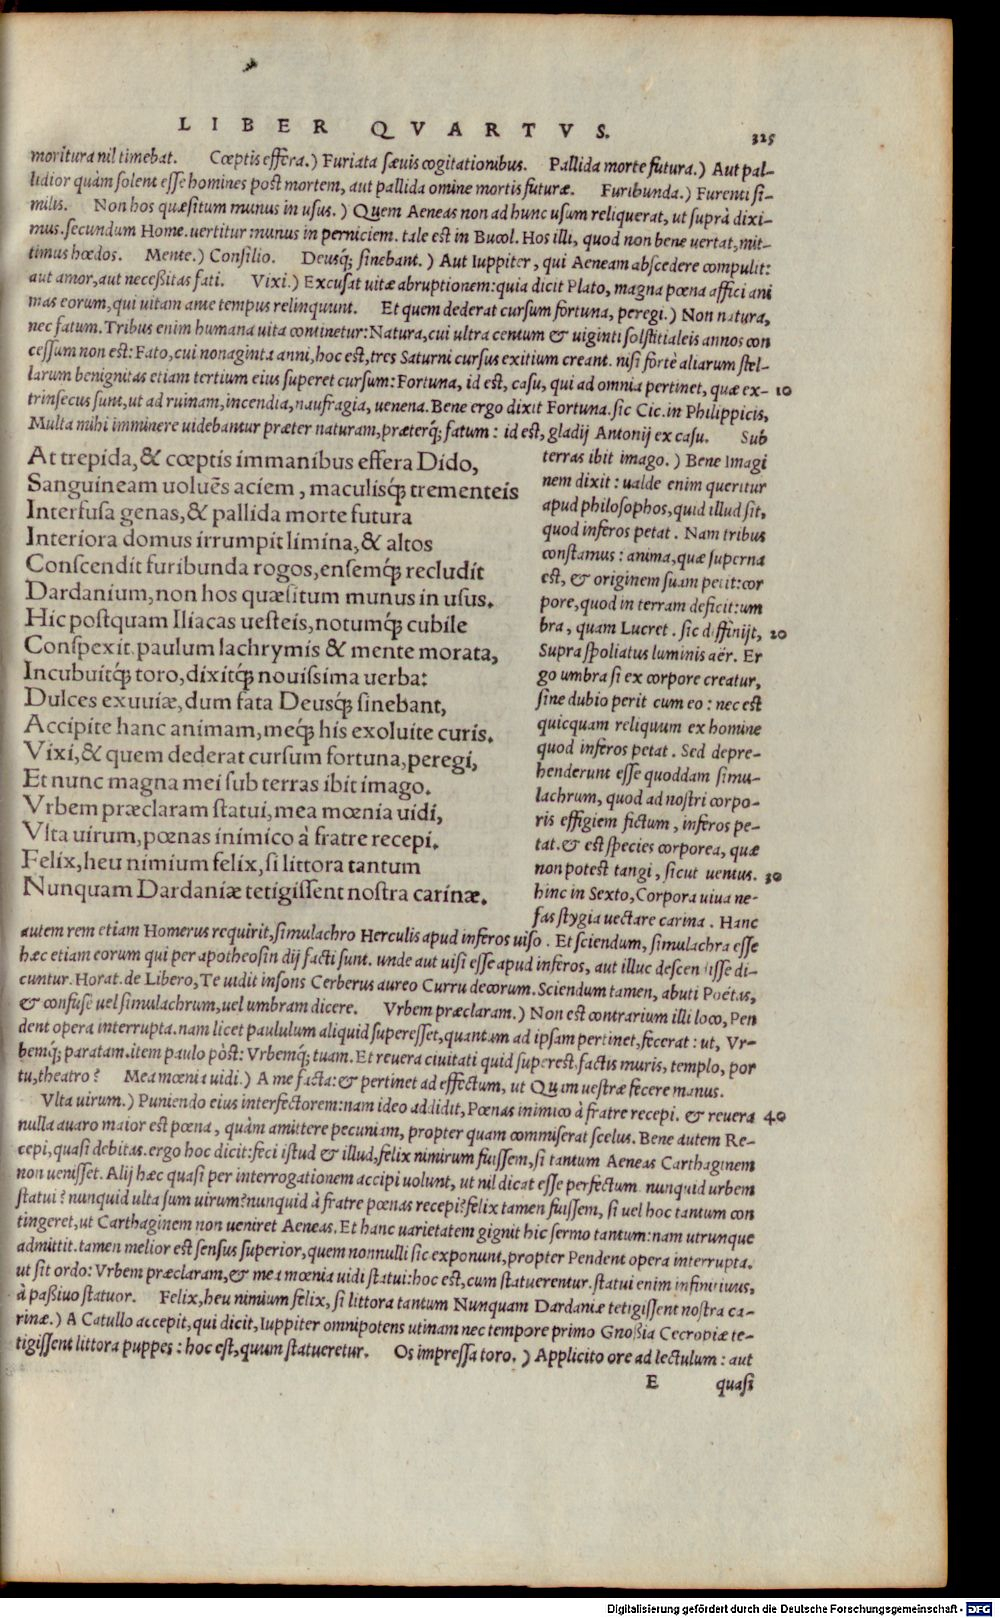 LIBER QVARTVS. 325
moritura nil timebat. Cœptis effera.) Furiata sæuis cogitationibus. Pallida morte futura.) Aut pal-
lidior quàm solent esse homines post mortem, aut pallida omine mortis futuræ. Furibunda.) Furenti si-
milis. Non hos quæsitum munus in usus.) Quem Aeneas non ad hunc usum reliquerat, ut suprà dixi-
mus. secundum Home. uertitur munus in perniciem. tale est in Bucol. Hos illi, quod non bene uertat, mit-
timus hœdos. Mente.) Consilio. Deusq́; sinebant.) Aut Iuppiter, qui Aeneam abscedere compulit:
aut amor, aut necessitas fati. Vixi.) Excusat uitæ abruptionem: quia dicit Plato, magna pœna affici ani
mas eorum, qui uitam ante tempus relinquunt. Et quem dederat cursum fortuna, peregi.) Non natura,
nec fatum. Tribus enim humana uita continetur: Natura, cui ultra centum & uiginti solstitialeis annos con
cessum non est: Fato, cui nonaginta anni, hoc est, tres Saturni cursus exitium creant. nisi fortè aliarum stel-
larum benignitas etiam tertium eius superet cursum: Fortuna, id est, casu, qui ad omnia pertinet, quæ ex- 10
trinsecus sunt, ut ad ruinam, incendia, naufragia, uenena. Bene ergo dixit Fortuna. sic Cic. in Philippicis,
Multa mihi imminere uidebantur præter naturam, præterq́; fatum: id est, gladij Antonij ex casu. Sub
At trepida, & cœptis immanibus effera Dido,
Sanguineam uoluẽs aciem, maculisq́; trementeis
Interfusa genas, & pallida morte futura
Interiora domus irrumpit limina, & altos
Conscendit furibunda rogos, ensemq́; recludit
Dardanium, non hos quæsitum munus in usus.
Hic postquam Iliacas uesteis, notumq́; cubile
Conspexit. paulum lachrymis & mente morata,
Incubuitq́; toro, dixitq́; nouissima uerba:
Dulces exuuiæ, dum fata Deusq́; sinebant,
Accipite hanc animam, meq́; his exoluite curis.
Vixi, & quem dederat cursum fortuna, peregi,
Et nunc magna mei sub terras ibit imago.
Vrbem præclaram statui, mea mœnia uidi,
Vlta uirum, pœnas inimico à fratre recepi.
Felix, heu nimium felix, si littora tantum
Nunquam Dardaniæ tetigissent nostra carinæ.
terras ibit imago.) Bene Imagi
nem dixit: ualde enim queritur
apud philosophos, quid illud sit,
quod inferos petat. Nam tribus
constamus: anima, quæ superna
est, & originem suam petit: cor
pore, quod in terram deficit: um
bra, quam Lucret. sic diffinijt, 20
Supra spoliatus luminis aër. Er
go umbra si ex corpore creatur,
sine dubio perit cum eo: nec est
quicquam reliquum ex homine
quod inferos petat. Sed depre-
henderunt esse quoddam simu-
lachrum, quod ad nostri corpo-
ris effigiem fictum, inferos pe-
tat. & est species corporea, quæ
non potest tangi, sicut uentus. 30
hinc in Sexto, Corpora uiua ne-
fas stygia uectare carina. Hanc
autem rem etiam Homerus requirit, simulachro Herculis apud inferos uiso. Et sciendum, simulachra esse
hæc etiam eorum qui per apotheosin dij facti sunt. unde aut uisi esse apud inferos, aut illuc descendisse di-
cuntur. Horat. de Libero, Te uidit insons Cerberus aureo Curru decorum. Sciendum tamen, abuti Poëtas,
& confusè uel simulachrum, uel umbram dicere. Vrbem præclaram.) Non est contrarium illi loco, Pen
dent opera interrupta. nam licet paululum aliquid superesset, quantum ad ipsam pertinet, fecerat: ut, Vr-
bemq́; paratam. item paulo pòst: Vrbemq́; tuam. Et reuera ciuitati quid superest. factis muris, templo, por
tu, theatro? Mea mœnia uidi.) A me facta: & pertinet ad effectum, ut Quam uestræ fecere manus.
Vlta uirum.) Puniendo eius interfectorem: nam ideo addidit, Pœnas inimico à fratre recepi. & reuera 40
nulla auaro maior est pœna, quàm amittere pecuniam, propter quam commiserat scelus. Bene autem Re-
cepi, quasi debitas. ergo hoc dicit: feci istud & illud, felix nimirum fuissem, si tantum Aeneas Carthaginem
non uenisset. Alij hæc quasi per interrogationem accipi uolunt, ut nil dicat esse perfectum. nunquid urbem
statui? nunquid ulta sum uirum? nunquid à fratre pœnas recepi? felix tamen fuissem, si uel hoc tantum con
tingeret, ut Carthaginem non ueniret Aeneas. Et hanc uarietatem gignit hic sermo tantum: nam utrunque
admittit. tamen melior est sensus superior, quem nonnulli sic exponunt, propter Pendent opera interrupta.
ut sit ordo: Vrbem præclaram, & mea mœnia uidi statui: hoc est, cum statuerentur. statui enim infinitiuus,
à passiuo statuor. Felix, heu nimium felix, si littora tantum Nunquam Dardaniæ tetigissent nostra ca-
rinæ.) A Catullo accepit, qui dicit, Iuppiter omnipotens utinam nec tempore primo Gnossia Cecropiæ te-
tigissent littora puppes: hoc est, quum statueretur. Os impressa toro.) Applicito ore ad lectulum: aut
E quasi
Digitalisierung gefördert durch die Deutsche Forschungsgemeinschaft - DFG